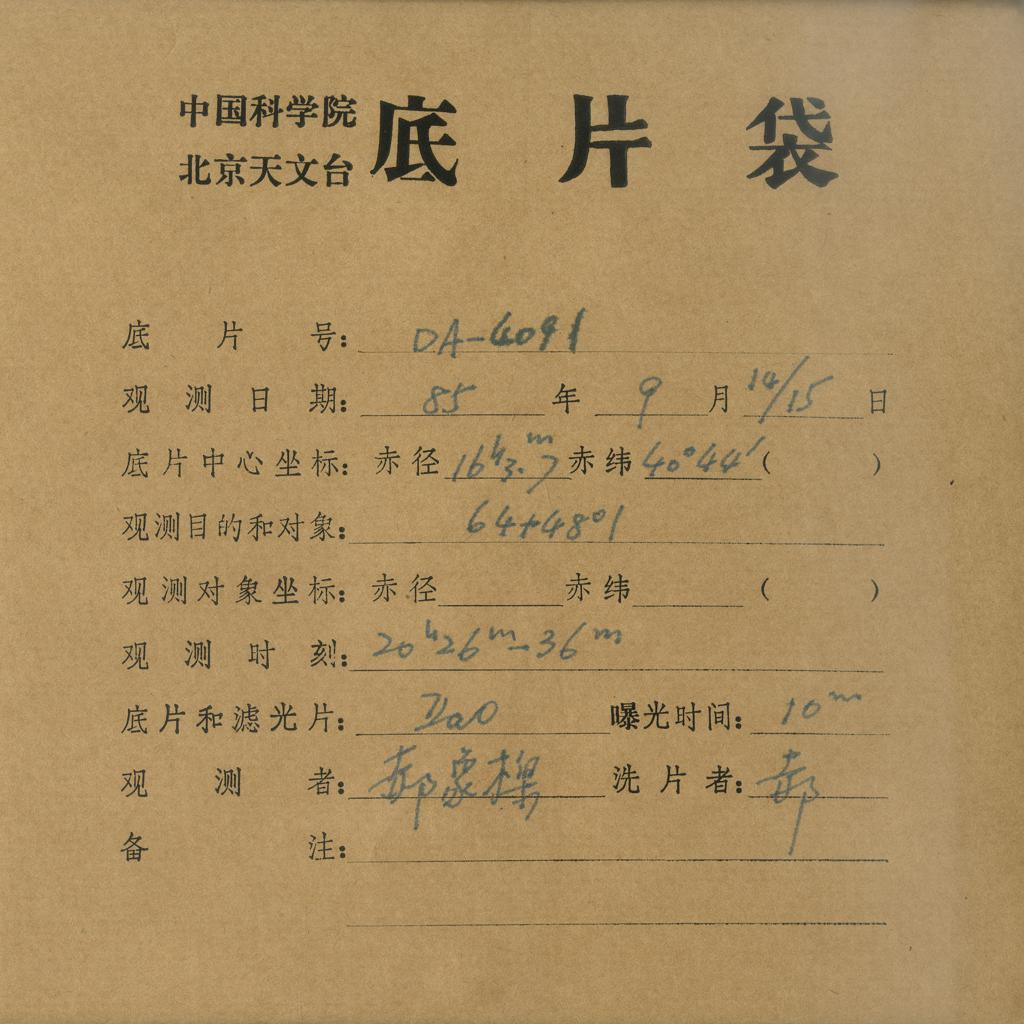 中国科学院
北京天文台
底片袋
底片号: DA-4091
观测日期: 85 年 9 月 14/15 日
底片中心坐标: 赤径 16h3.m7 赤纬 40°44′ ( )
观测目的和对象: 64+4801
观测对象坐标: 赤径 赤纬 ( )
观测时刻: 20h26m-36m
底片和滤光片: IIaO 曝光时间: 10m
观测者: 郝象樑 洗片者: 郝
备注: